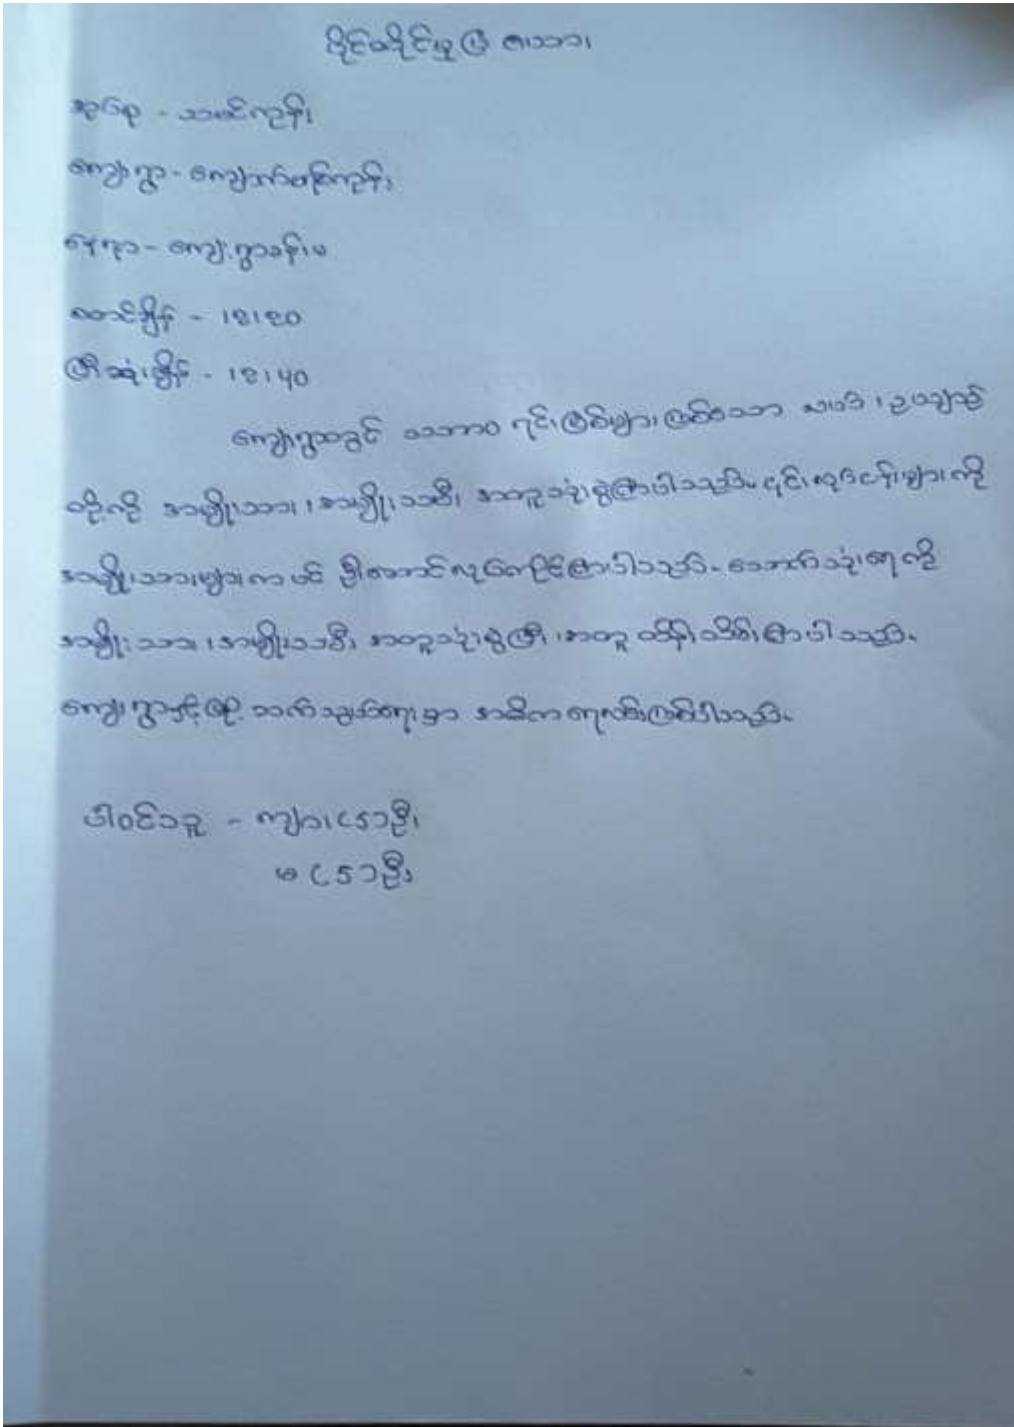 ပိုင်ဆိုင်မှုပြ ဇယား
အုပ်စု - သမင်ကုန်း
ကျေးရွာ - ကျောက်တစ်ကုန်း
နေရာ - ကျေးရွာခန်းမ
စတင်ချိန် - ၁း၂၀
ပြီးဆုံးချိန် - ၁း၄၀
ကျေးရွာတွင် သဘာဝ ရင်းမြစ်များဖြစ်သော
တို့ကို အမျိုးသား၊ အမျိုးသမီး အတူသုံးစွဲကြပါသည်။ ၎င်းလုပ်ငန်းများကို
အမျိုးသားများကပင် ဦးဆောင်လုပ်ကိုင်ကြပါသည်။ သောက်သုံးရေကို
အမျိုးသား၊ အမျိုးသမီး အတူသုံးစွဲပြီး၊ အတူ ထိန်းသိမ်းကြပါသည်။
ကျေးရွာနှင့်မြို့ ဆက်သွယ်ရေးမှာ အဓိက ရေလမ်းဖြစ်ပါသည်။
ပါဝင်သူ - ကျား(၅)ဦး
မ(၅)ဦး